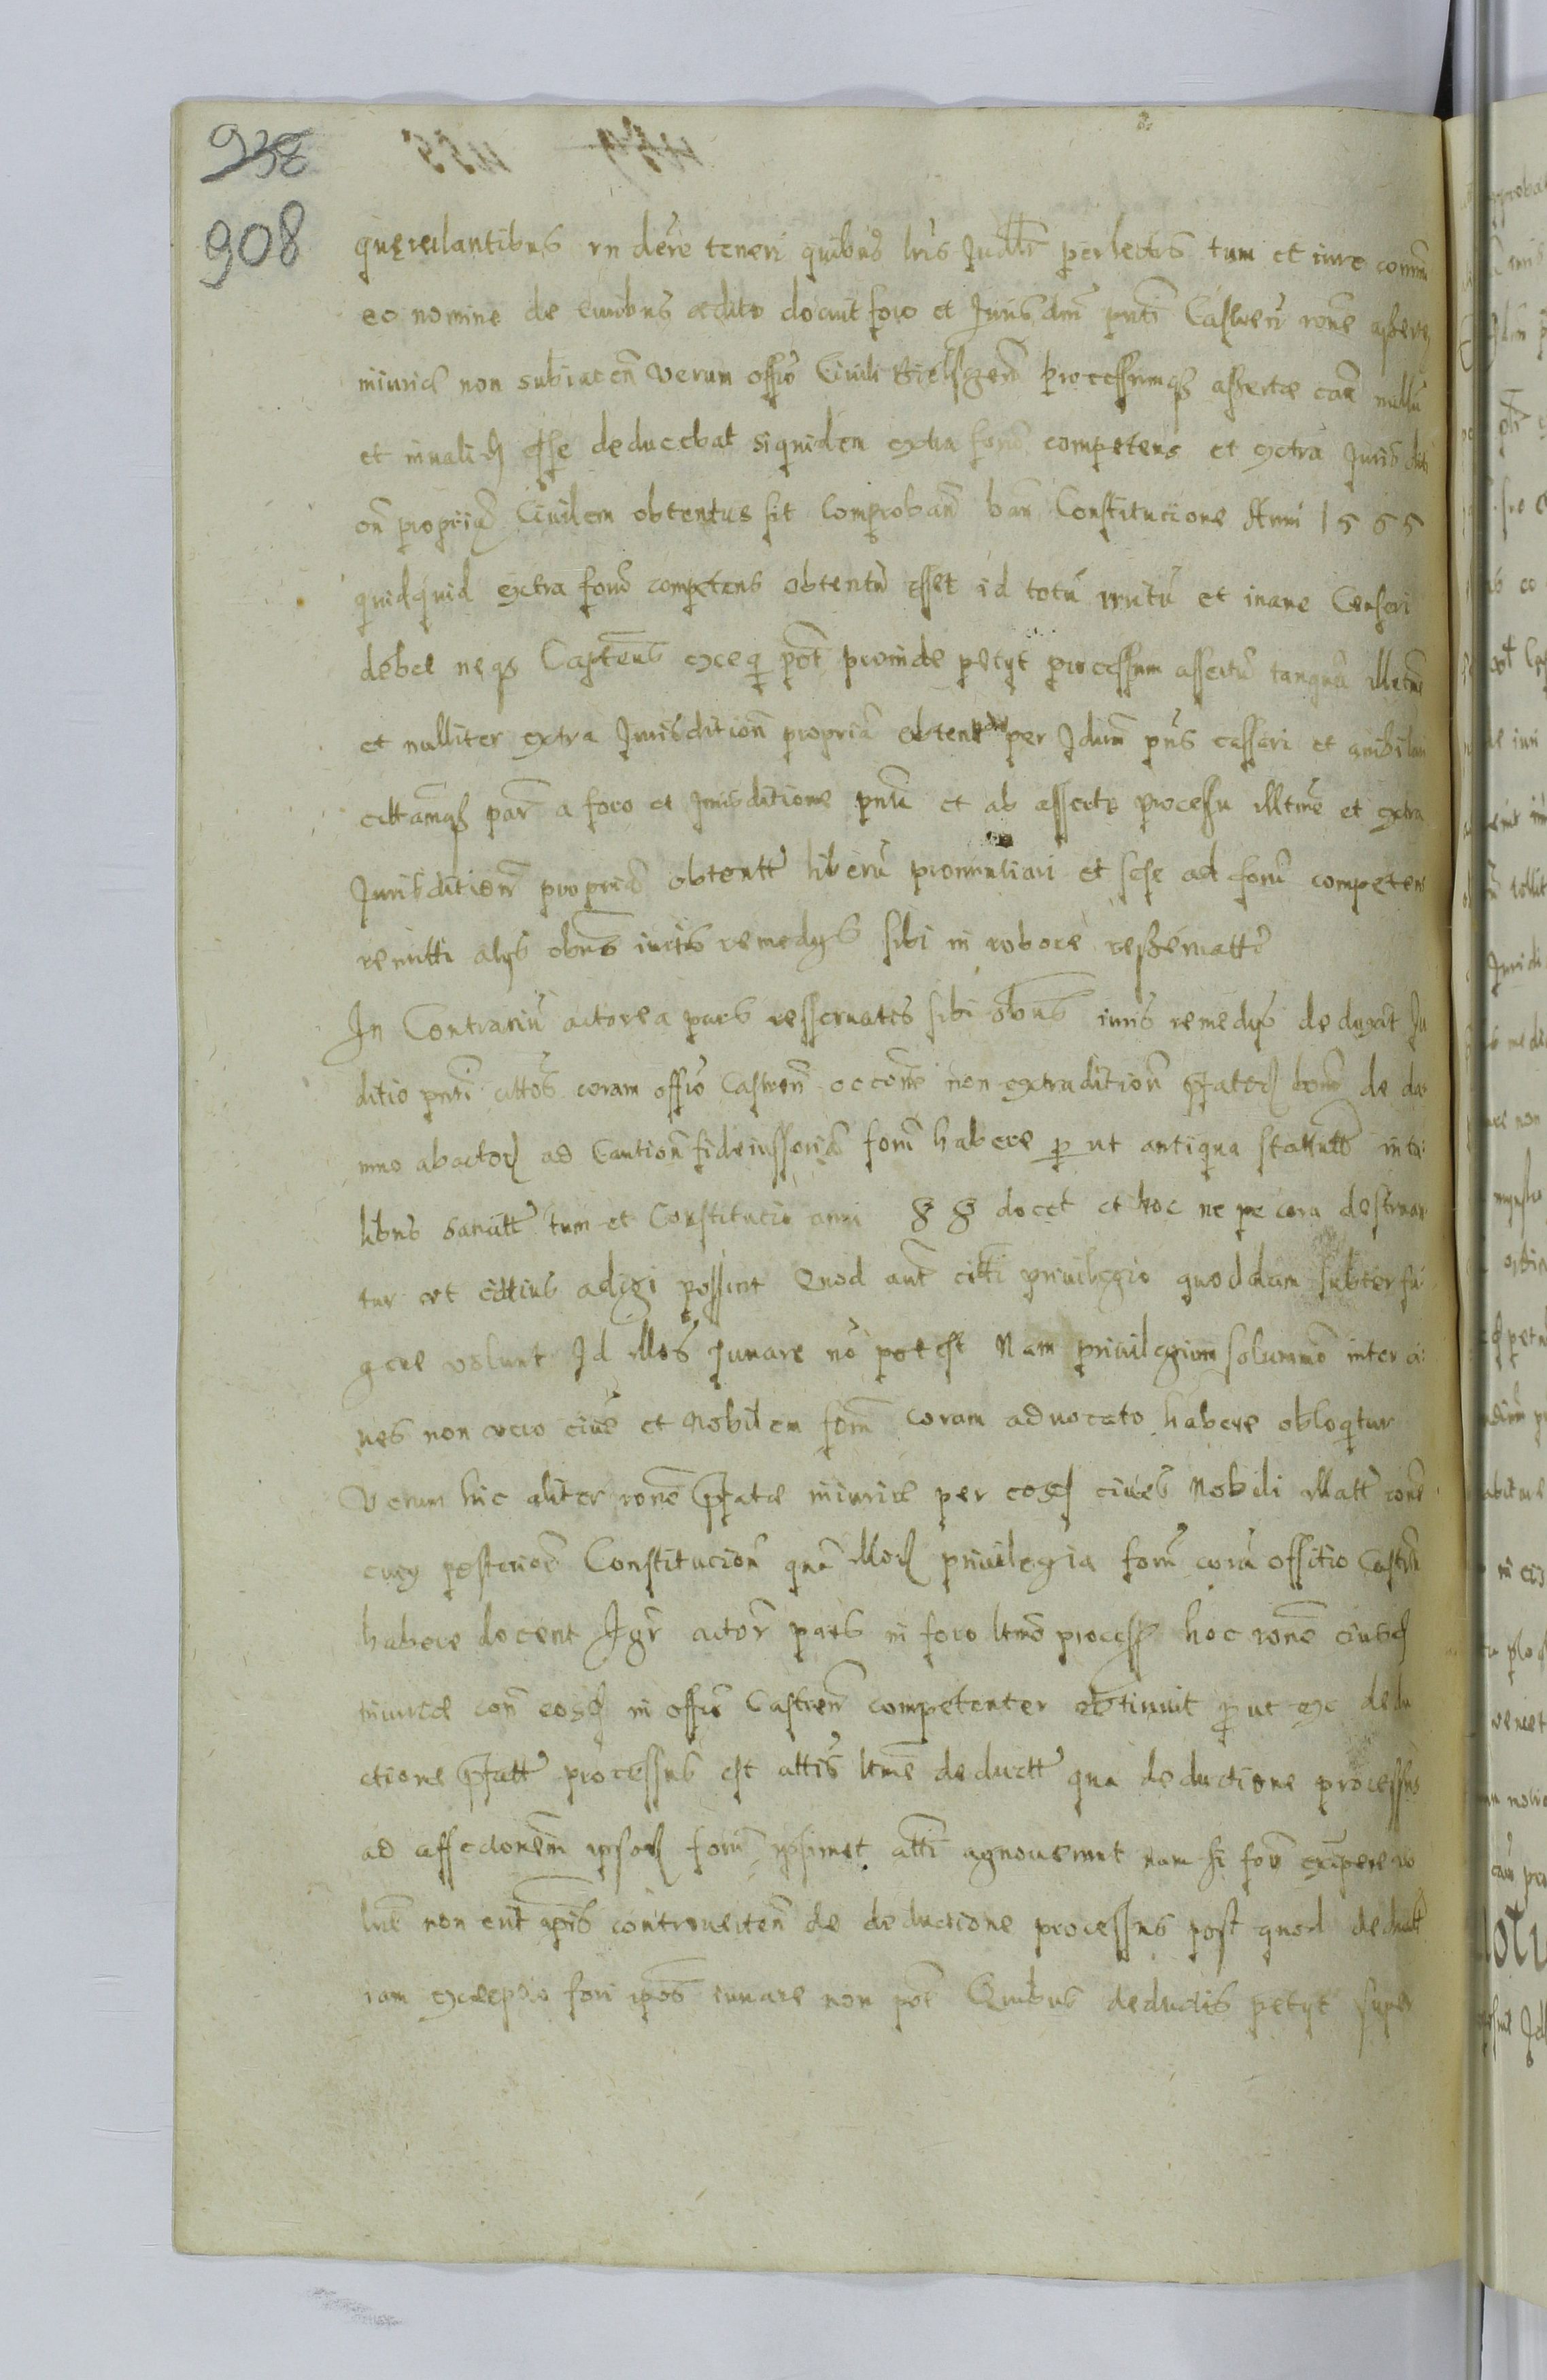 938
908
querelantibus rndere teneri quibus lris Judlr perlectis tum et iure commu
eo nomine de civibus aedito docuit foro et Jurisdni pnti Castren rone assertę
iniuriae non subiacen verum offio Civili Bielscen processumq assertae cae nullu
et inualid esse deducebat siquidem extra foru competens et extra Jurisditi
on propria Civilem obtentus sit Comproban Constitucione Anni 1565
quidquid extra foru competens obtentu esset id totu irritu et inane Censeri
debet neqs Captens exequi pot proinde petyt processum assertu tanquã illtme
et nulliter extra Jurisdition propria obtent per Jdium pns cassari et anihilari
cittamqs par a foro et Jurisditione pnti et ab asserto processu illtme et extra
Jurisdition propria obtentt liberu pronunliari et sese ad foru competens
remitti alys obus iuris remedys sibi in robore
In Contrariu actorea pars resseruatis sibi obus iuris remedys deduxit Ju
ditio pnti cittos coram offio Castren occone non extradition pfator bonor de do
mno abactor ad Caution fideiussoria foru habere put antiqua statuta in ta
libus tum et Constitucio anni 88 docet et hoc ne pecora destruan
tur et cittius adigi possint Quod aut citti priuilegio quoddam subterfu
gere volunt Id illos juuare no potest Nam priuilegium solummo inter ci
ues non vero ciue et Nobilem foru coram aduocato habere obloqtur
Verum hic aliter rone pfatae iniuriae per eosd ciues Nobili illatt rone
cuius posterior Constitucion qua illor priuilegia foru cora offitio Castren
habere docent Igr actor pars in foro ltmo process hoc rone eiusd
iniuriae con eosd in offio Castren competenter obtinuit put ex dedu
ctione pfatt processus est attis ltme deductt qua deductione processus
ad ipsor foru ipsimet atti agnouerunt nam si foru excipere vo
luis non erit ipsis controverten de deductione processus post quod deductt
iam exceptio fori ipsos iuuare non pot Quibus deductis petyt super